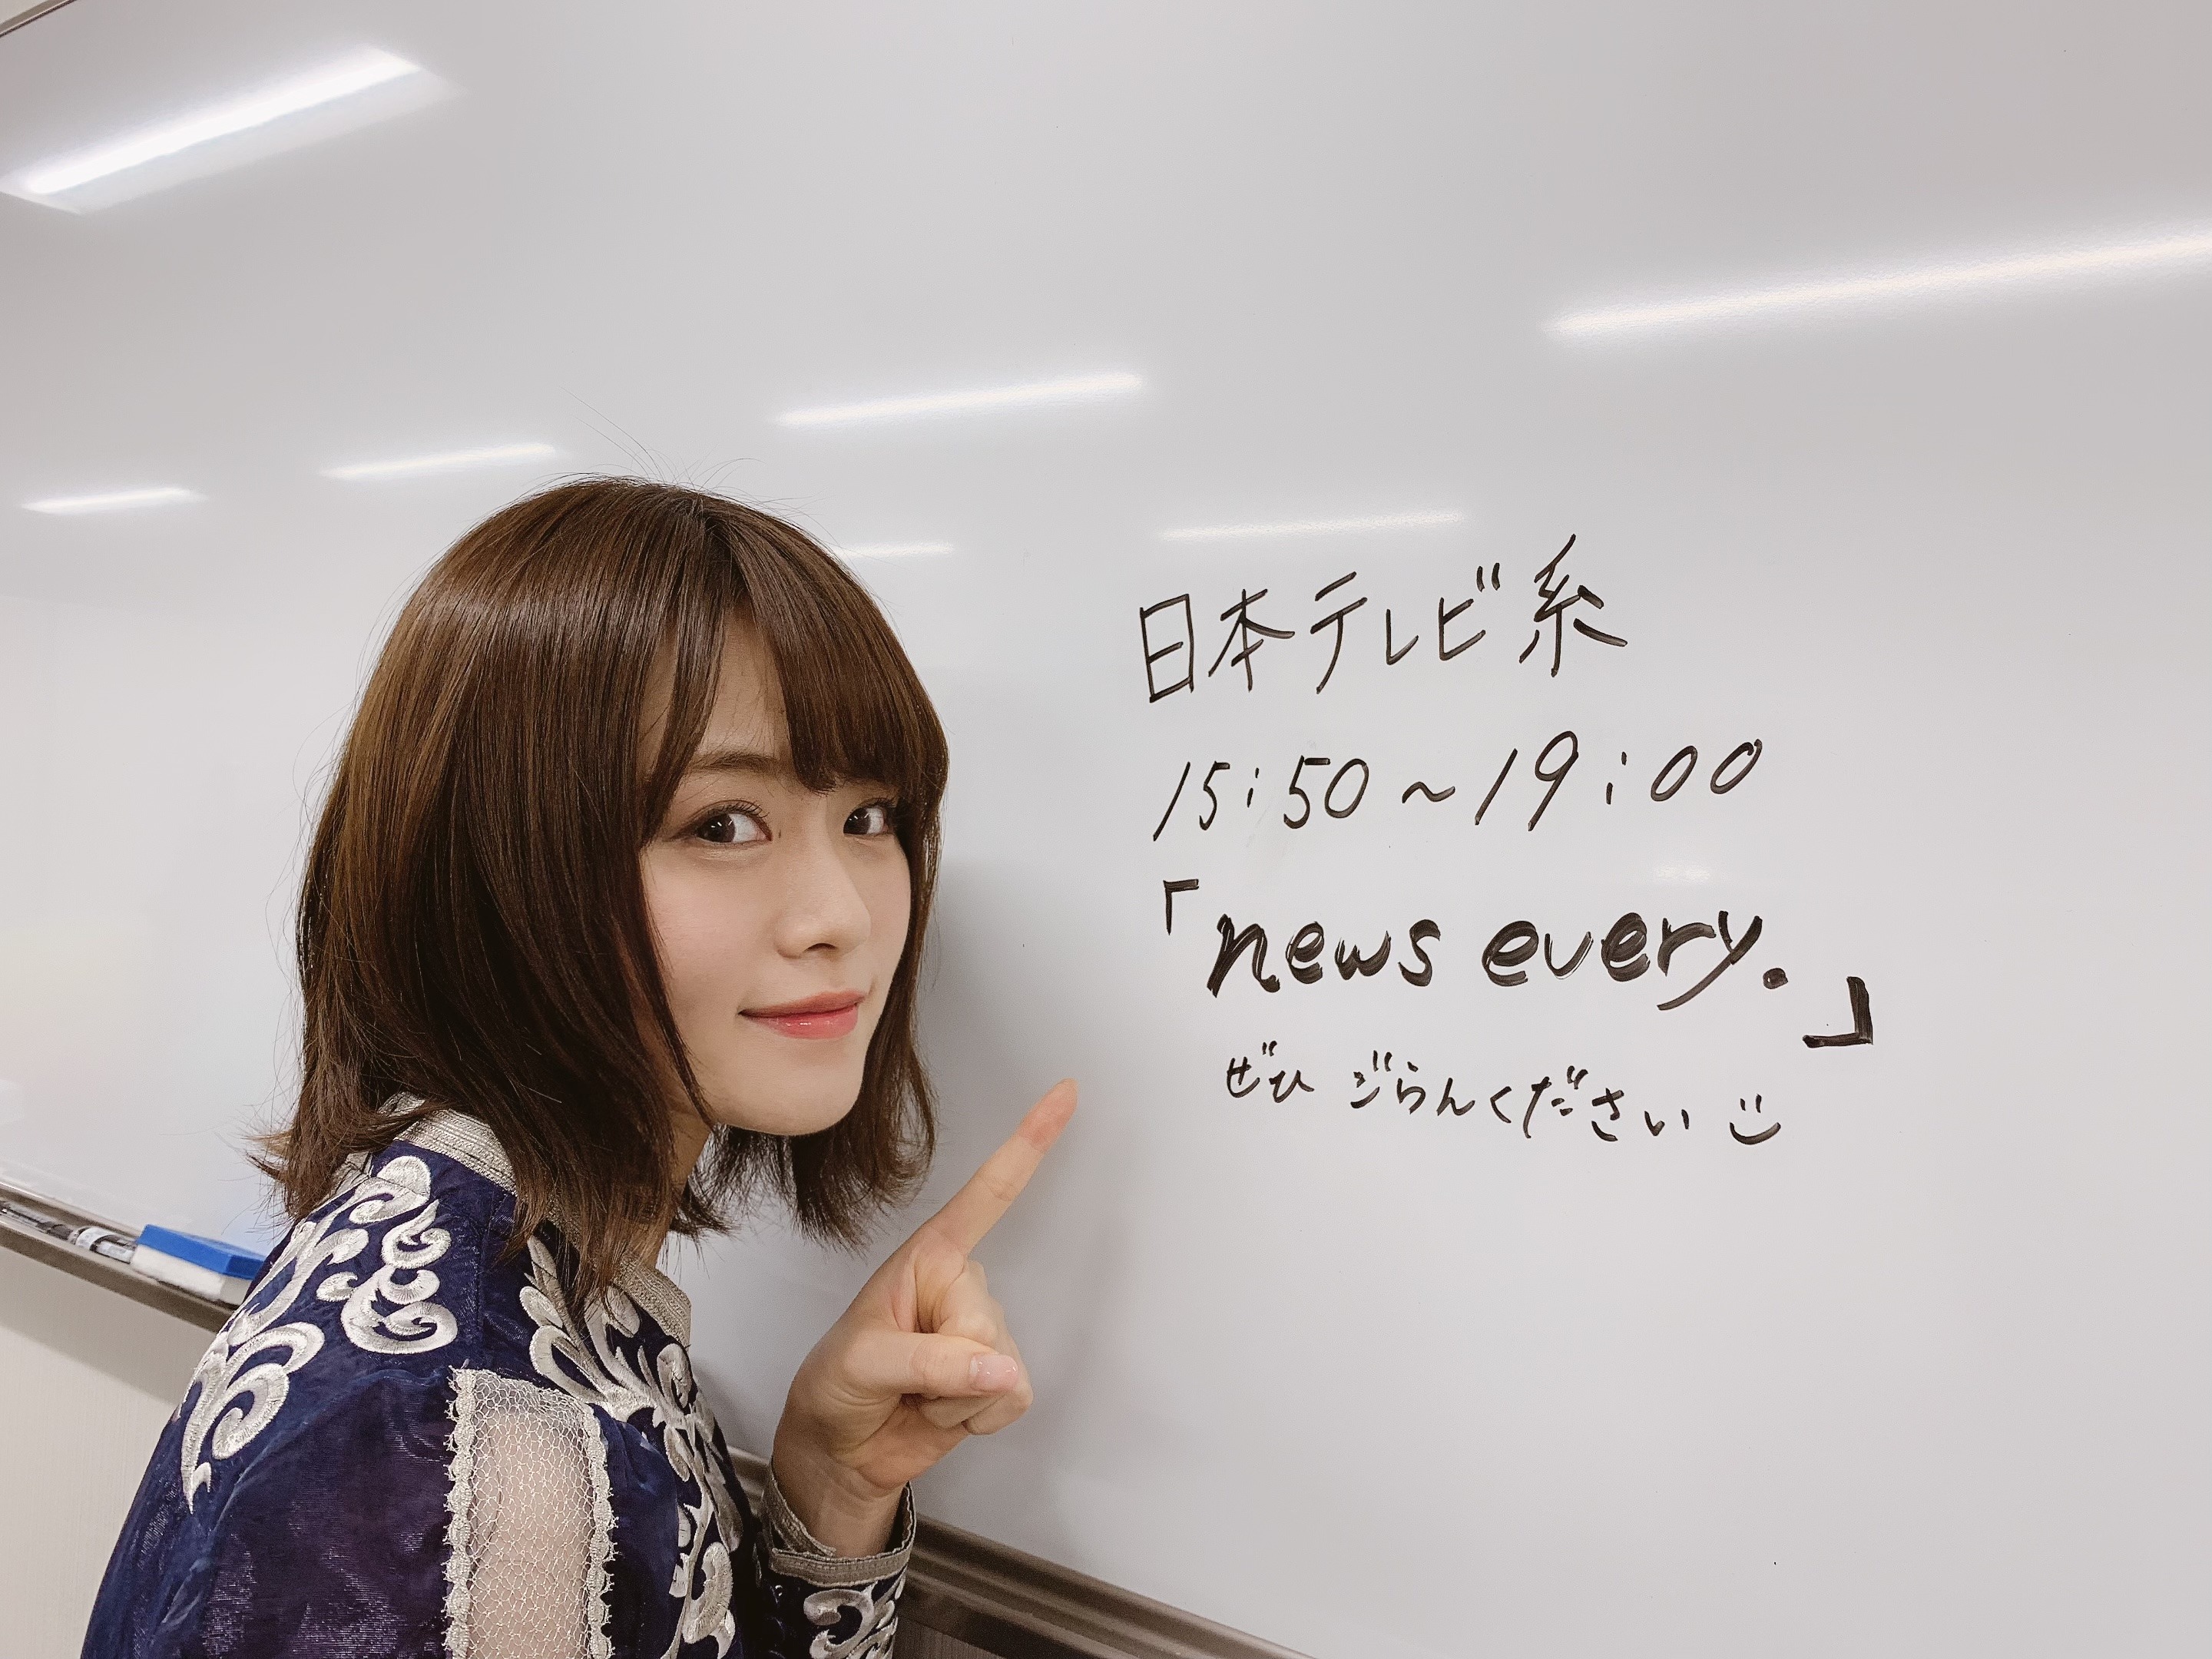 日本テレビ系
15:50~19:00
「news every.」
ぜひ ごらんください